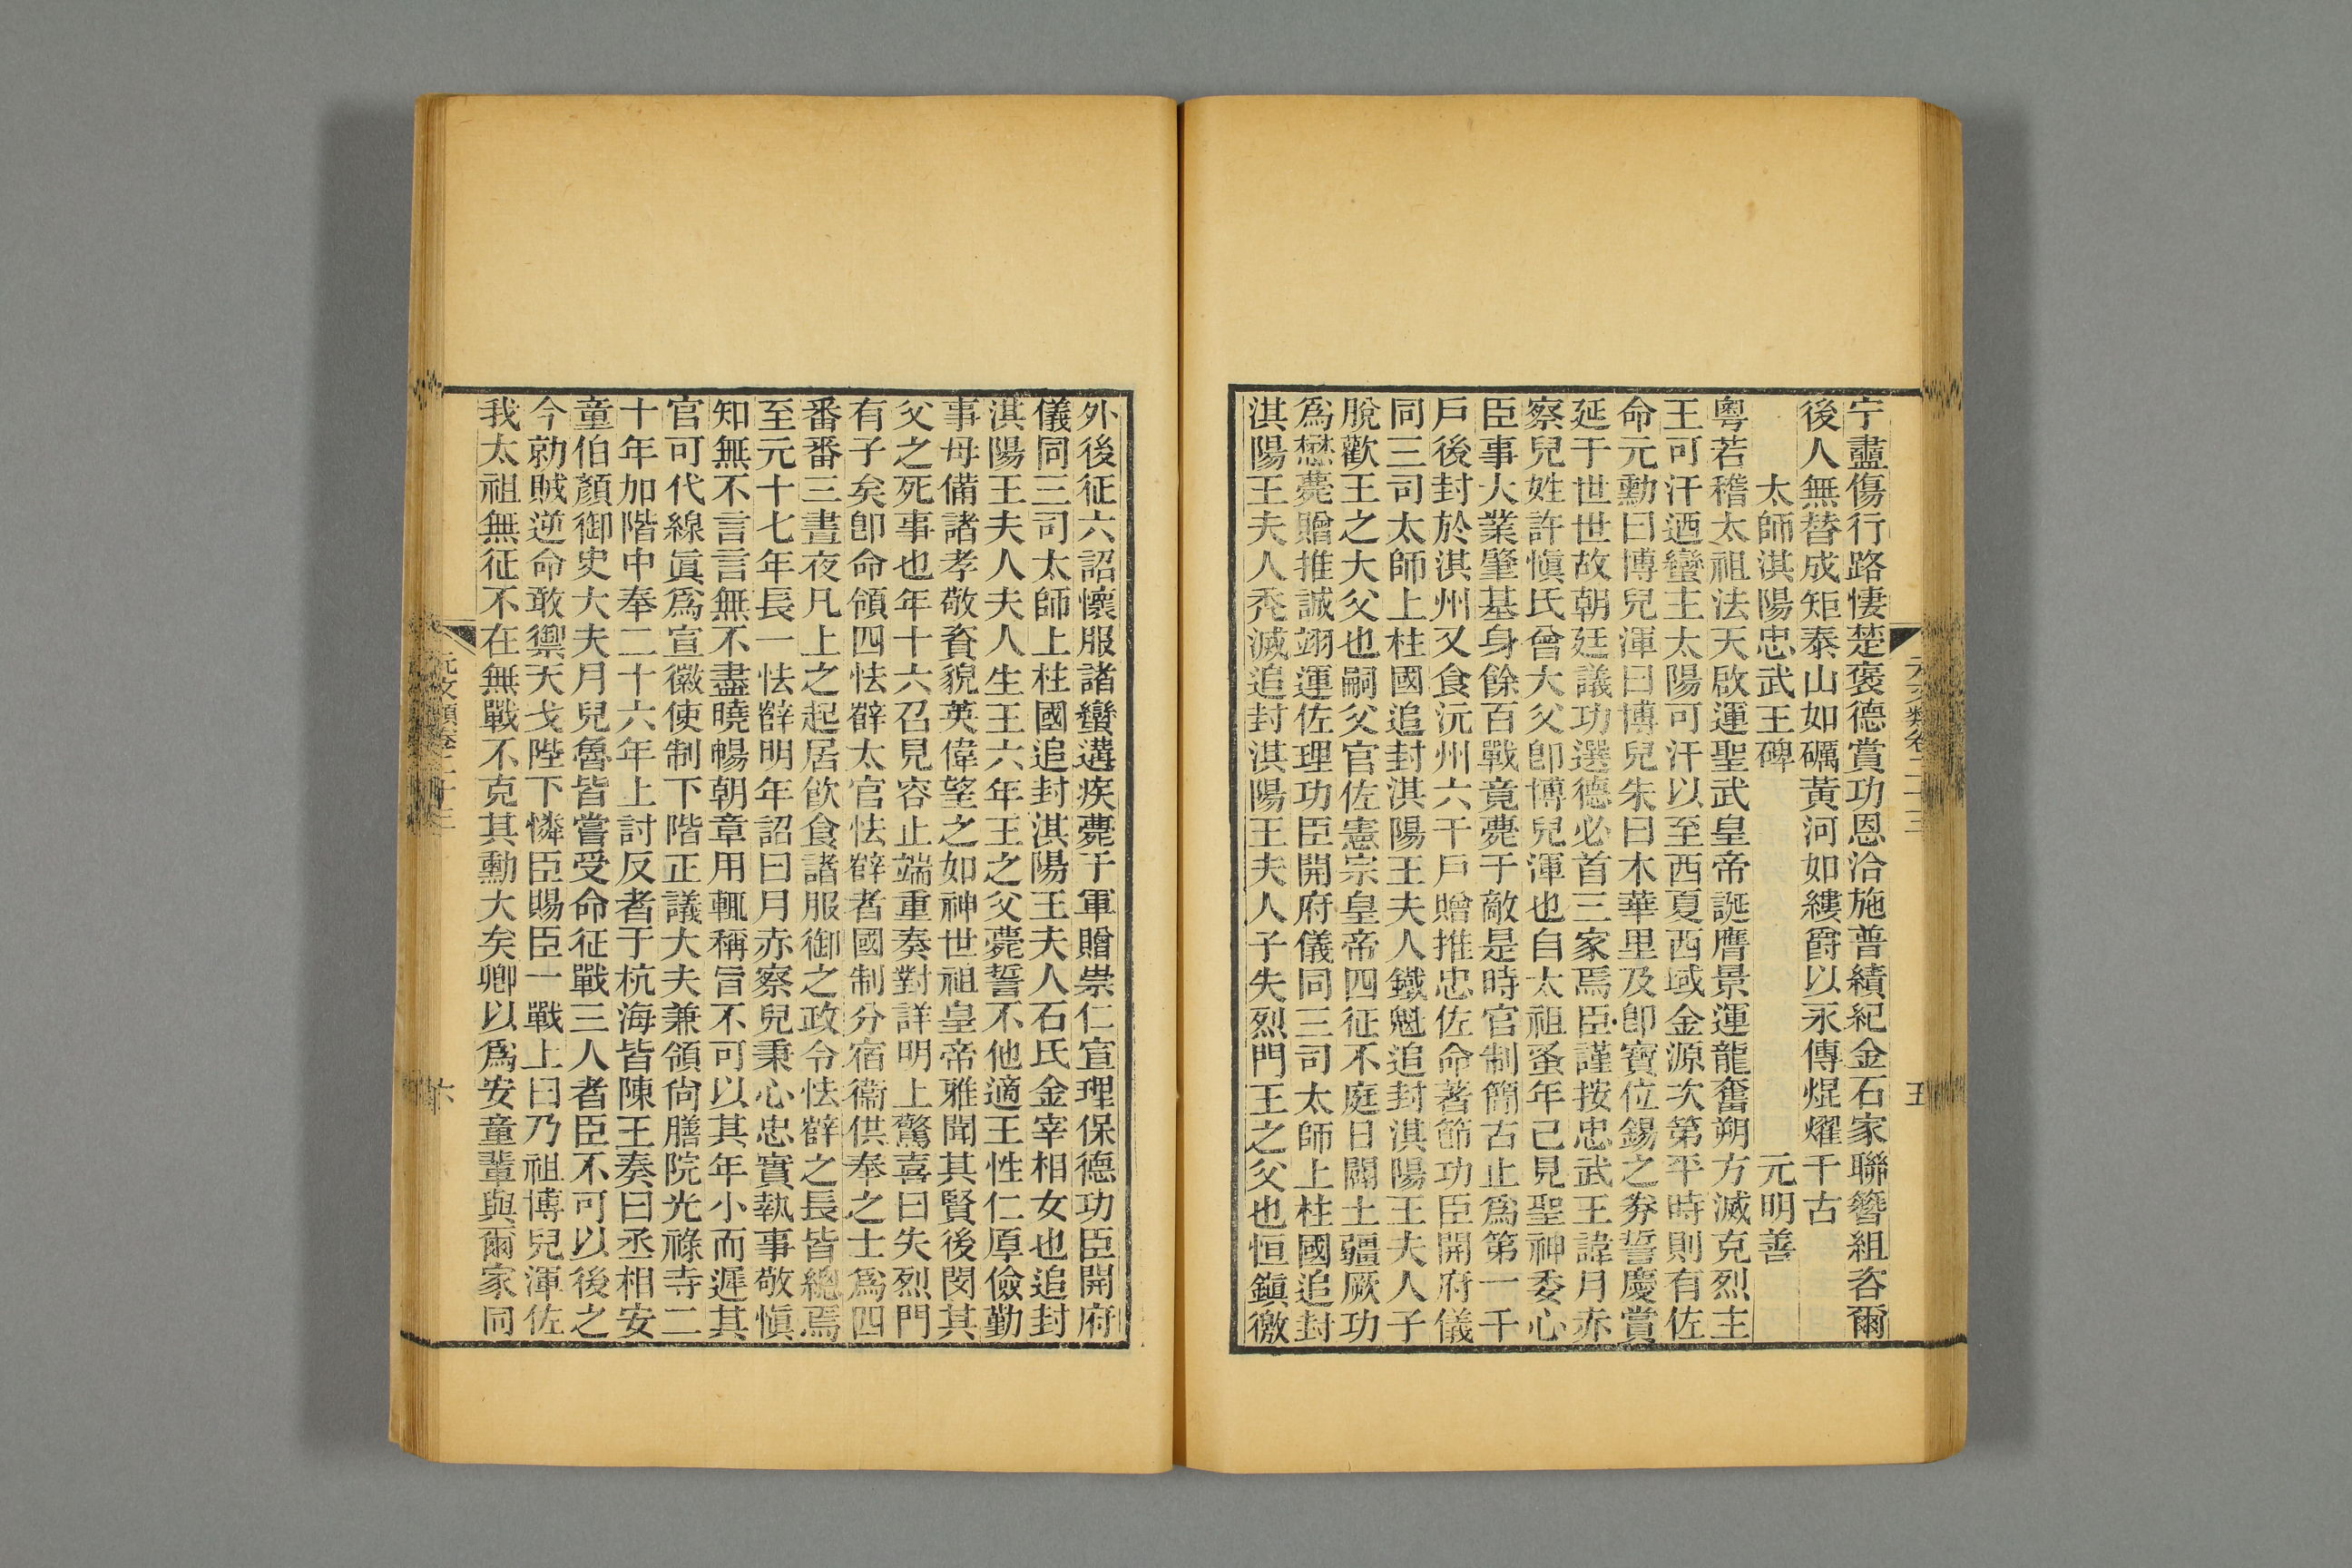 宁衋傷行路悽楚褒德賞功恩洽施普績紀金石家聯簪組咨爾
後人無替成矩泰山如礪黃河如縷爵以永傳焜燿千古
太師淇陽忠武王碑 元明善
粵若稽太祖法天啟運聖武皇帝誕膺景運龍奮朔方滅克烈主
王可汗迺蠻主太陽可汗以至西夏西域金源次第平時則有佐
命元勳曰博兒渾曰博兒朱曰木華里及卽寶位錫之券誓慶賞
延于世世故朝廷議功選德必首三家焉臣謹按忠武王諱月赤
察兒姓許愼氏曾大父卽博兒渾也自太祖蚤年已見聖神委心
臣事大業肇基身餘百戰竟薨于敵是時官制簡古止爲第一千
戶後封於淇州又食沅州六千戶贈推忠佐命著節功臣開府儀
同三司太師上柱國追封淇陽王夫人鐵魁追封淇陽王夫人子
脫歡王之大父也嗣父官佐憲宗皇帝四征不庭日闢土疆厥功
爲懋薨贈推誠翊運佐理功臣開府儀同三司太師上柱國追封
淇陽王夫人禿滅追封淇陽王夫人子失烈門王之父也恒鎭徼
元文類卷二十三 五
外後征六詔懷服諸蠻遘疾薨于軍贈崇仁宣理保德功臣開府
儀同三司太師上柱國追封淇陽王夫人石氏金宰相女也追封
淇陽王夫人夫人生王六年王之父薨誓不他適王性仁厚儉勤
事母備諸孝敬資貌英偉望之如神世祖皇帝雅聞其賢後閔其
父之死事也年十六召見容止端重奏對詳明上驚喜曰失烈門
有子矣卽命領四怯薛太官怯薛者國制分宿衞供奉之士爲四
番番三晝夜凡上之起居飮食諸服御之政令怯薛之長皆總焉
至元十七年長一怯薛明年詔曰月赤察兒秉心忠實執事敬愼
知無不言言無不盡曉暢朝章用輒稱旨不可以其年小而遲其
官可代線眞爲宣徽使制下階正議大夫兼領尙膳院光祿寺二
十年加階中奉二十六年上討反者于杭海皆陳王奏曰丞相安
童伯顏御史大夫月兒魯皆嘗受命征戰三人者臣不可以後之
今勍賊逆命敢禦天戈陛下憐臣賜臣一戰上曰乃祖博兒渾佐
我太祖無征不在無戰不克其勳大矣卿以爲安童輩與爾家同
元文類卷二十三 六